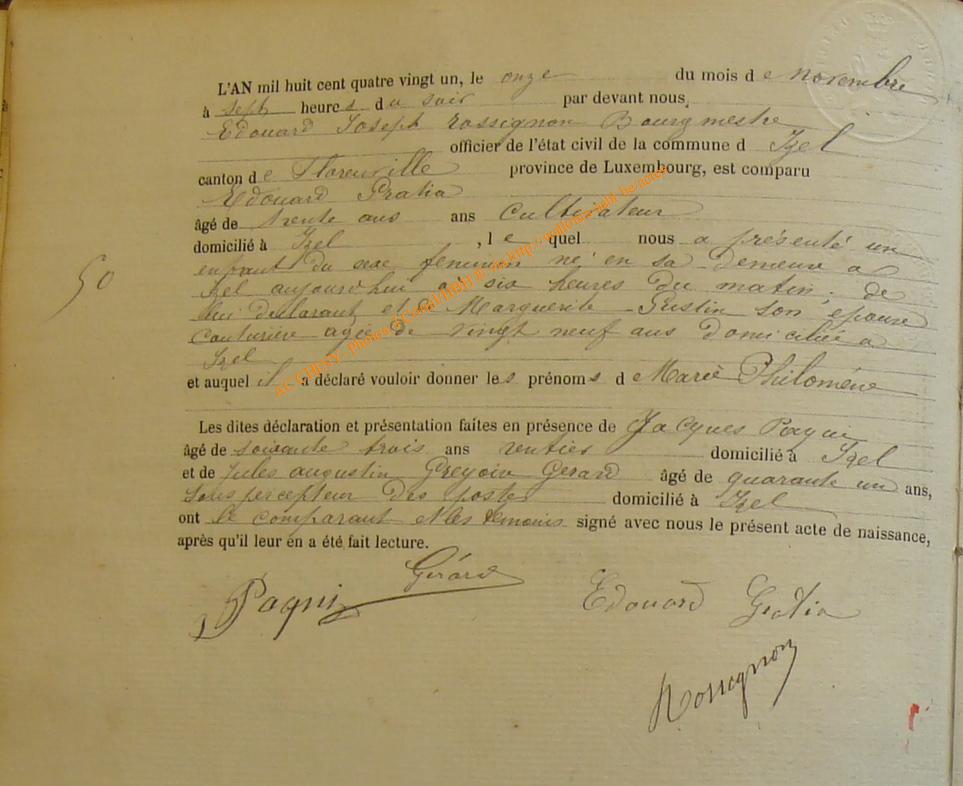 L'AN mil huit cent quatre vingt un, le onze du mois de novembre
à sept heures du soir par devant nous,
Edouard Joseph Rossignon Bourgmestre
officier de l'état civil de la commune d Izel
canton de Florenville province de Luxembourg, est comparu
Edouard Gratia
âgé de trente ans ans Cultivateur
domicilié à Izel , le quel nous a présenté un
50
enfant du sexe féminin né en sa demeure a
Izel aujourd'hui a six heures du matin, de
lui déclarant et de Marguerite Justin son épouse
couturière agée de vingt neuf ans domiciliée a
Izel
et auquel il a déclaré vouloir donner les prénoms de Marie Philomène
Les dites déclaration et présentation faites en présence de Jacques
âgé de soixante trois ans rentier domicilié à Izel
et de Jules augustin Gérard âgé de quarante un ans,
Sous percepteur des postes domicilié à Izel
ont le comparant et les témoins signé avec nous le présent acte de naissance,
après qu'il leur en a été fait lecture.
Gérard
Edouard Gratia
Rossignon